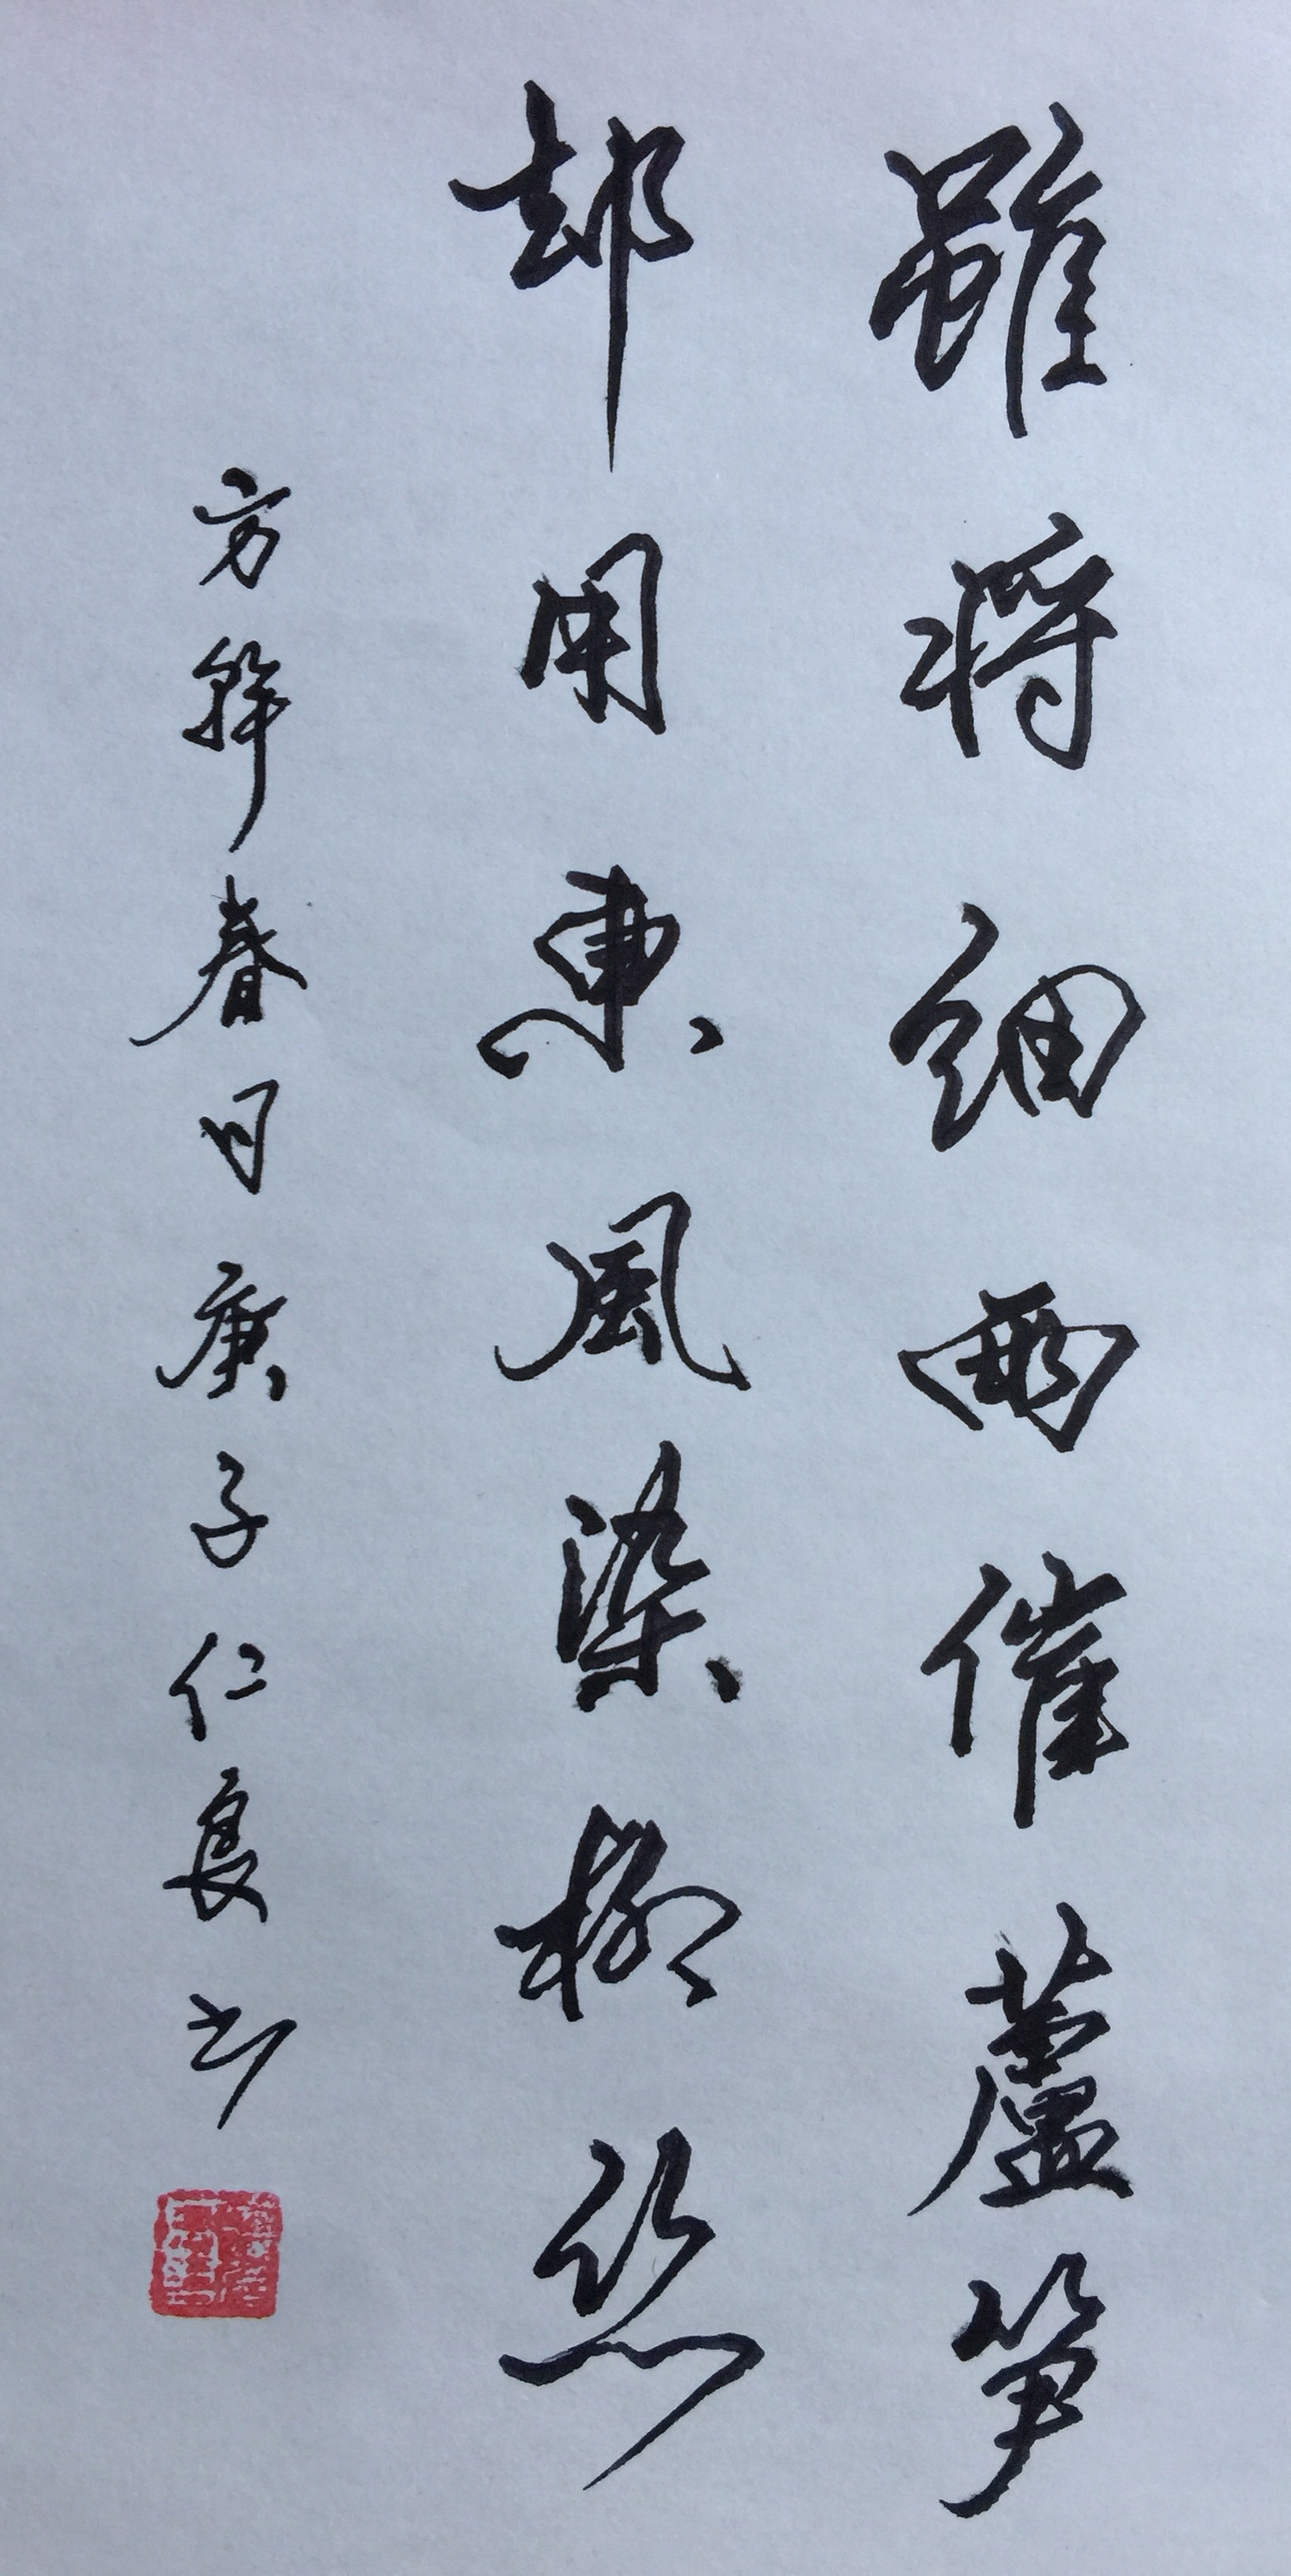 雖將細雨催蘆筍
却用東風染柳絲
方幹春日庚子仁良书